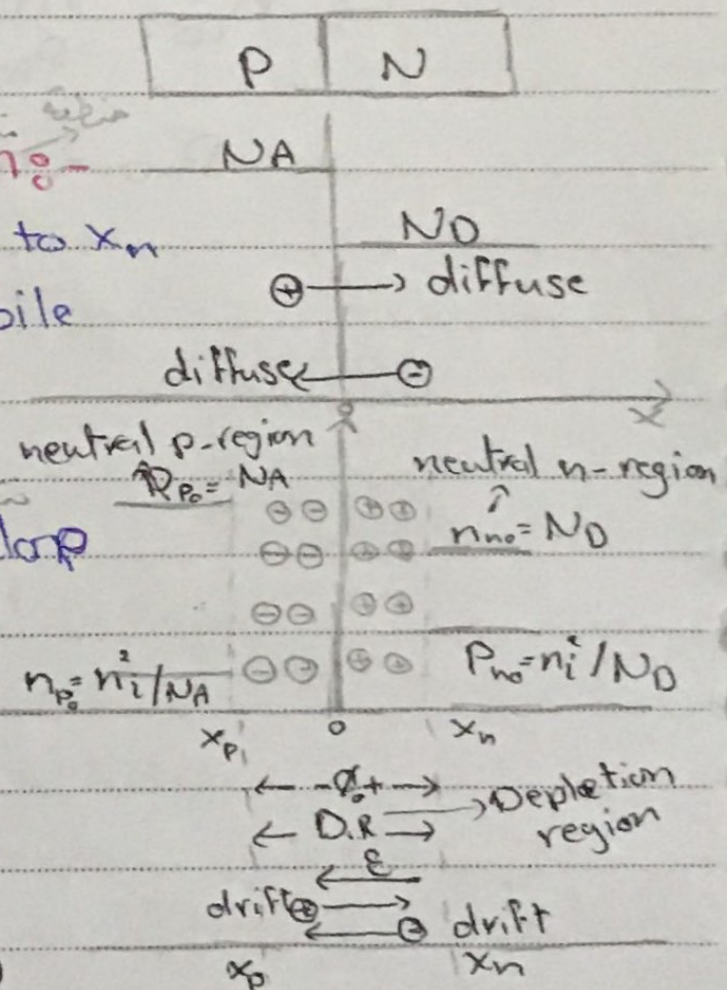 P N
NA
to xn
ND
⊕ → diffuse
bile
diffuse ← ⊖
x
0
neutral p-region
Pp₀ = NA
neutral n-region
nn₀ = ND
⊖⊖ ⊕⊕
lamp
⊖⊖ ⊕⊕
⊖⊖ ⊕⊕
np₀ = ni²/NA
⊖⊖ ⊕⊕
Pn₀ = ni²/ND
xp 0 xn
← -∅₀+ →
← D.R → → Depletion
region
← ε
drift ⊕ →
← ⊖ drift
xp xn